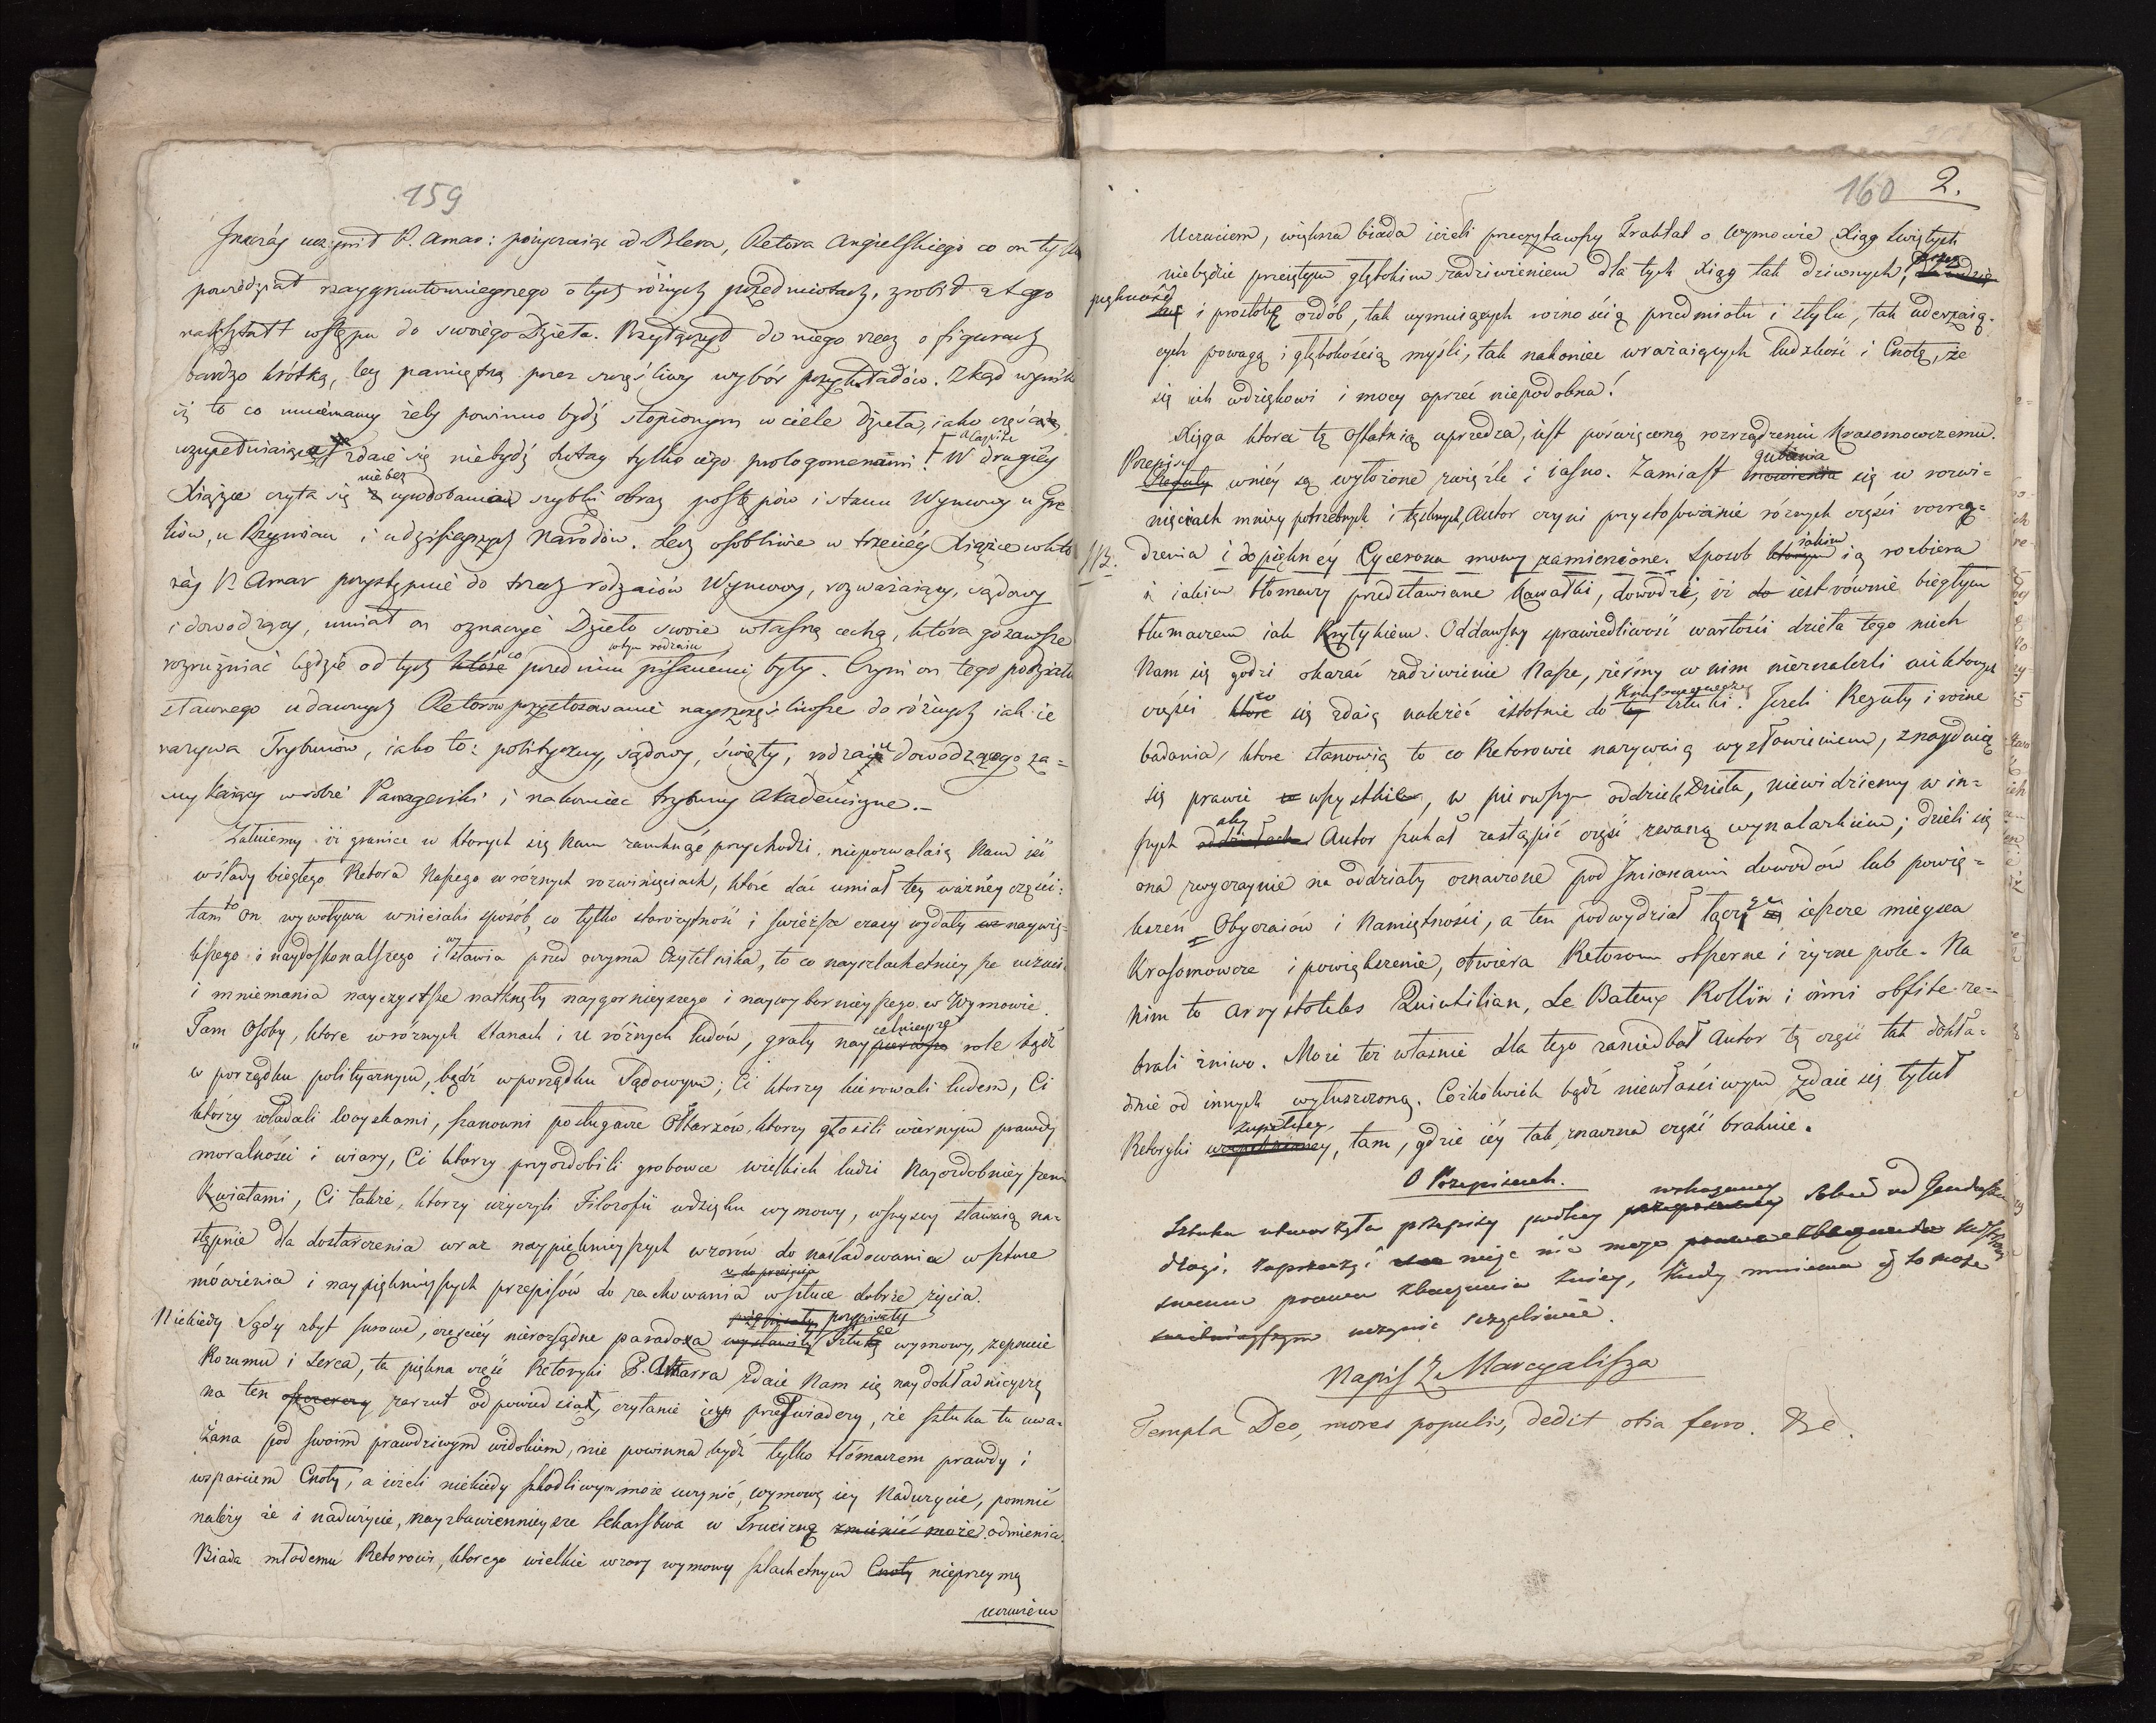 159
Inaczéy uczynił P. Amar: pożyczaiąc od Blera, Retora Angielskiego co on tylko
powiedział naygruntownieyszego o tych różnych przedmiotach, zrobił z tego
nakształt wstępu do swoiego Dzieła. Przyłączył do niego rzecz o figurach
bardzo krótką, lecz pamiętną przez szczęśliwy wybór przykładów. Zkąd wynika
iż to co mniemamy żeby powinno bydź stopionym w ciele dzieła, iako część
uzupełniaiąca zdaie się niebydź tutay tylko iego prologomenami. W drugiéy
niebez
Xiążce czyta się upodobania szybki obraz postępów i stanu Wymowy u Gre
ków, u Rzymian i u dzisieyszych Narodów. Lecz osobliwie w trzeciéy Xiążce w któ
réy P. Amar przystępuie do trzech rodzaiów Wymowy, rozważaiący, sądowy
i dowodzący, umiał on oznaczyć Dzieło swoie własną cechą, która go zawsze
w tym rodzaiu
rozrużniać będzie od tych które co przed nim pisanemi były. Czyni on tego podziału
sławnego u dawnych Retorów przystosowanie nayszczęśliwsze do różnych iak ie
nazywa Trybunów, iako to: polityczny, sądowy, święty, rodzaiu dowodzącego za=
mykaiący w sobie Panageriki i nakoniec trybuny Akademiczne.–
Żałuiemy iż granice w których się Nam zamknąć przychodzi, niepozwalaią Nam iść
w ślady biegłego Retora Naszego w różnych rozwinięciach, które dać umiał tey ważnéy części:
tam to on wywoływa w nieiaki sposób, co tylko starożytność i świeższe czasy wydały naywię-
kszego i naydoskonalszego i stawia przed oczyma Czytelnika, to co nayszlachetnieysze uczucia
i mniemania nayczystsze natknęły naygornieyszego i naywybornieyszego w Wymowie.
celnieysze
Tam Osoby, które w różnych Stanach i u różnych ludów, grały nay pierwsze role bądź
w porządku politycznym, bądź w porządku Sądowym; Ci którzy kierowali ludem, Ci
którzy władali woyskami, szanowni posługacze Ołtarzów, którzy głosili wiernym prawdy
moralności i wiary, Ci którzy przyozdobili grobowce wielkich ludzi Nayozdobnieyszemi
Kwiatami, Ci także, którzy użyczyli Filozofii wdzięku wymowy, wszyscy stawaią na-
stępnie dla dostarczenia wraz naypięknieyszych wzorów do naśladowania w sztuce
mówienia i naypięknieyszych przepisów do zachowania w sztuce dobrze życia.
Niekiedy Sądy zbyt surowe, częściéy nierozsądne paradoxa wymowy, zepsucie
Rozumu i Serca, ta piękna część Retoryki P. Amarra zdaie Nam się naydokładnieyszą
na ten zarzut odpowiedział, czytanie iego przeświadczy, że sztuka ta uwa-
żana pod swoim prawdziwym widokiem, nie powinna bydź tylko tłómaczem prawdy i
wsparciem Cnoty, a ieżeli niekiedy szkodliwym może uczynić, wymowę iey Nadużycie, pomnić
należy że i nadużycie, nayzbawiennieysze lekarstwa w Truciznę zmienić może odmienia.
Biada młodemu Retorowi, którego wielkie wzory wymowy szlachetnym Cnoty nieprzeymą
uczuciem
160 2.
Uczuciem, większa biada ieżeli przeczytawszy Traktat o wymowie Xiąg Świętych
niebędzie przeiętym głębokim zadziwieniem dla tych Xiąg tak dziwnych,
piękność i prostotę ozdób, tak uymuiących różnością przedmiotu i stylu, tak uderzaią-
cych powagą i głębokością myśli, tak nakoniec wrażaiących ludzkość i Cnotę, że
się ich wdziękowi i mocy oprzeć niepodobna!
Xięga która tę ostatnią uprzedza, iest poświęconą rozrządzeniu Krasomowczemu.
Przepisy gubienia
Reguły w niéy są wyłożone zwięźle i iasno. Zamiast mowienia się w rozwi-
nięciach mniéy potrzebnych i tęsknych, Autor czyni przystosowanie róznych części rozrzą=
dzenia i do piękney Cycerona mowy zamierzone. Sposób którym iakim ią rozbiera
i iakim tłomaczy przedstawiane kawałki, dowodzi, iż iest równie biegłym
tłumaczem iak Krytykiem. Oddawszy sprawiedliwość wartości dzieła tego niech
Nam się godzi okazać zadziwienie Nasze, żeśmy w nim nieznaleźli niektórych
części które się zdaią należeć istotnie do tey sztuki. Jeżeli Reguły i różne
badania, które stanowią to co Retorowie nazywaią wysłowieniem, znayduią
się prawie wszystkie, w pierwszym oddziele Dzieła, niewidziemy w in=
aby
szych oddziałach Autor szukał zastąpić część zwaną wynalazkiem; dzieli się
ona zwyczaynie na oddziały oznaczone pod Imionami dowodów lub powię=
kszeń Obyczaiów i Namiętności, a ten podwydział łącząc ieszcze mieysca
Krasomowcze i powiększenie, otwiera Retorom obszerne i żyzne pole. Na
nim to Arystoteles Quintilian, Le Bateux Rollin i inni obfite ze=
brali żniwo. Może też właśnie dla tego zaniedbał Autor tę część tak dokła=
dnie od innych wyłuszczoną. Cóżkolwiek bądź niewłaściwym zdaie się tytuł
zupełney
Retoryki, tam, gdzie iéy tak znaczna część braknie.
O Przepisach.
Sztuka utworzyła przepisy podług
Napis z Marcyalisza
Templa Deo, mores populis, dedit otia ferro. &c.